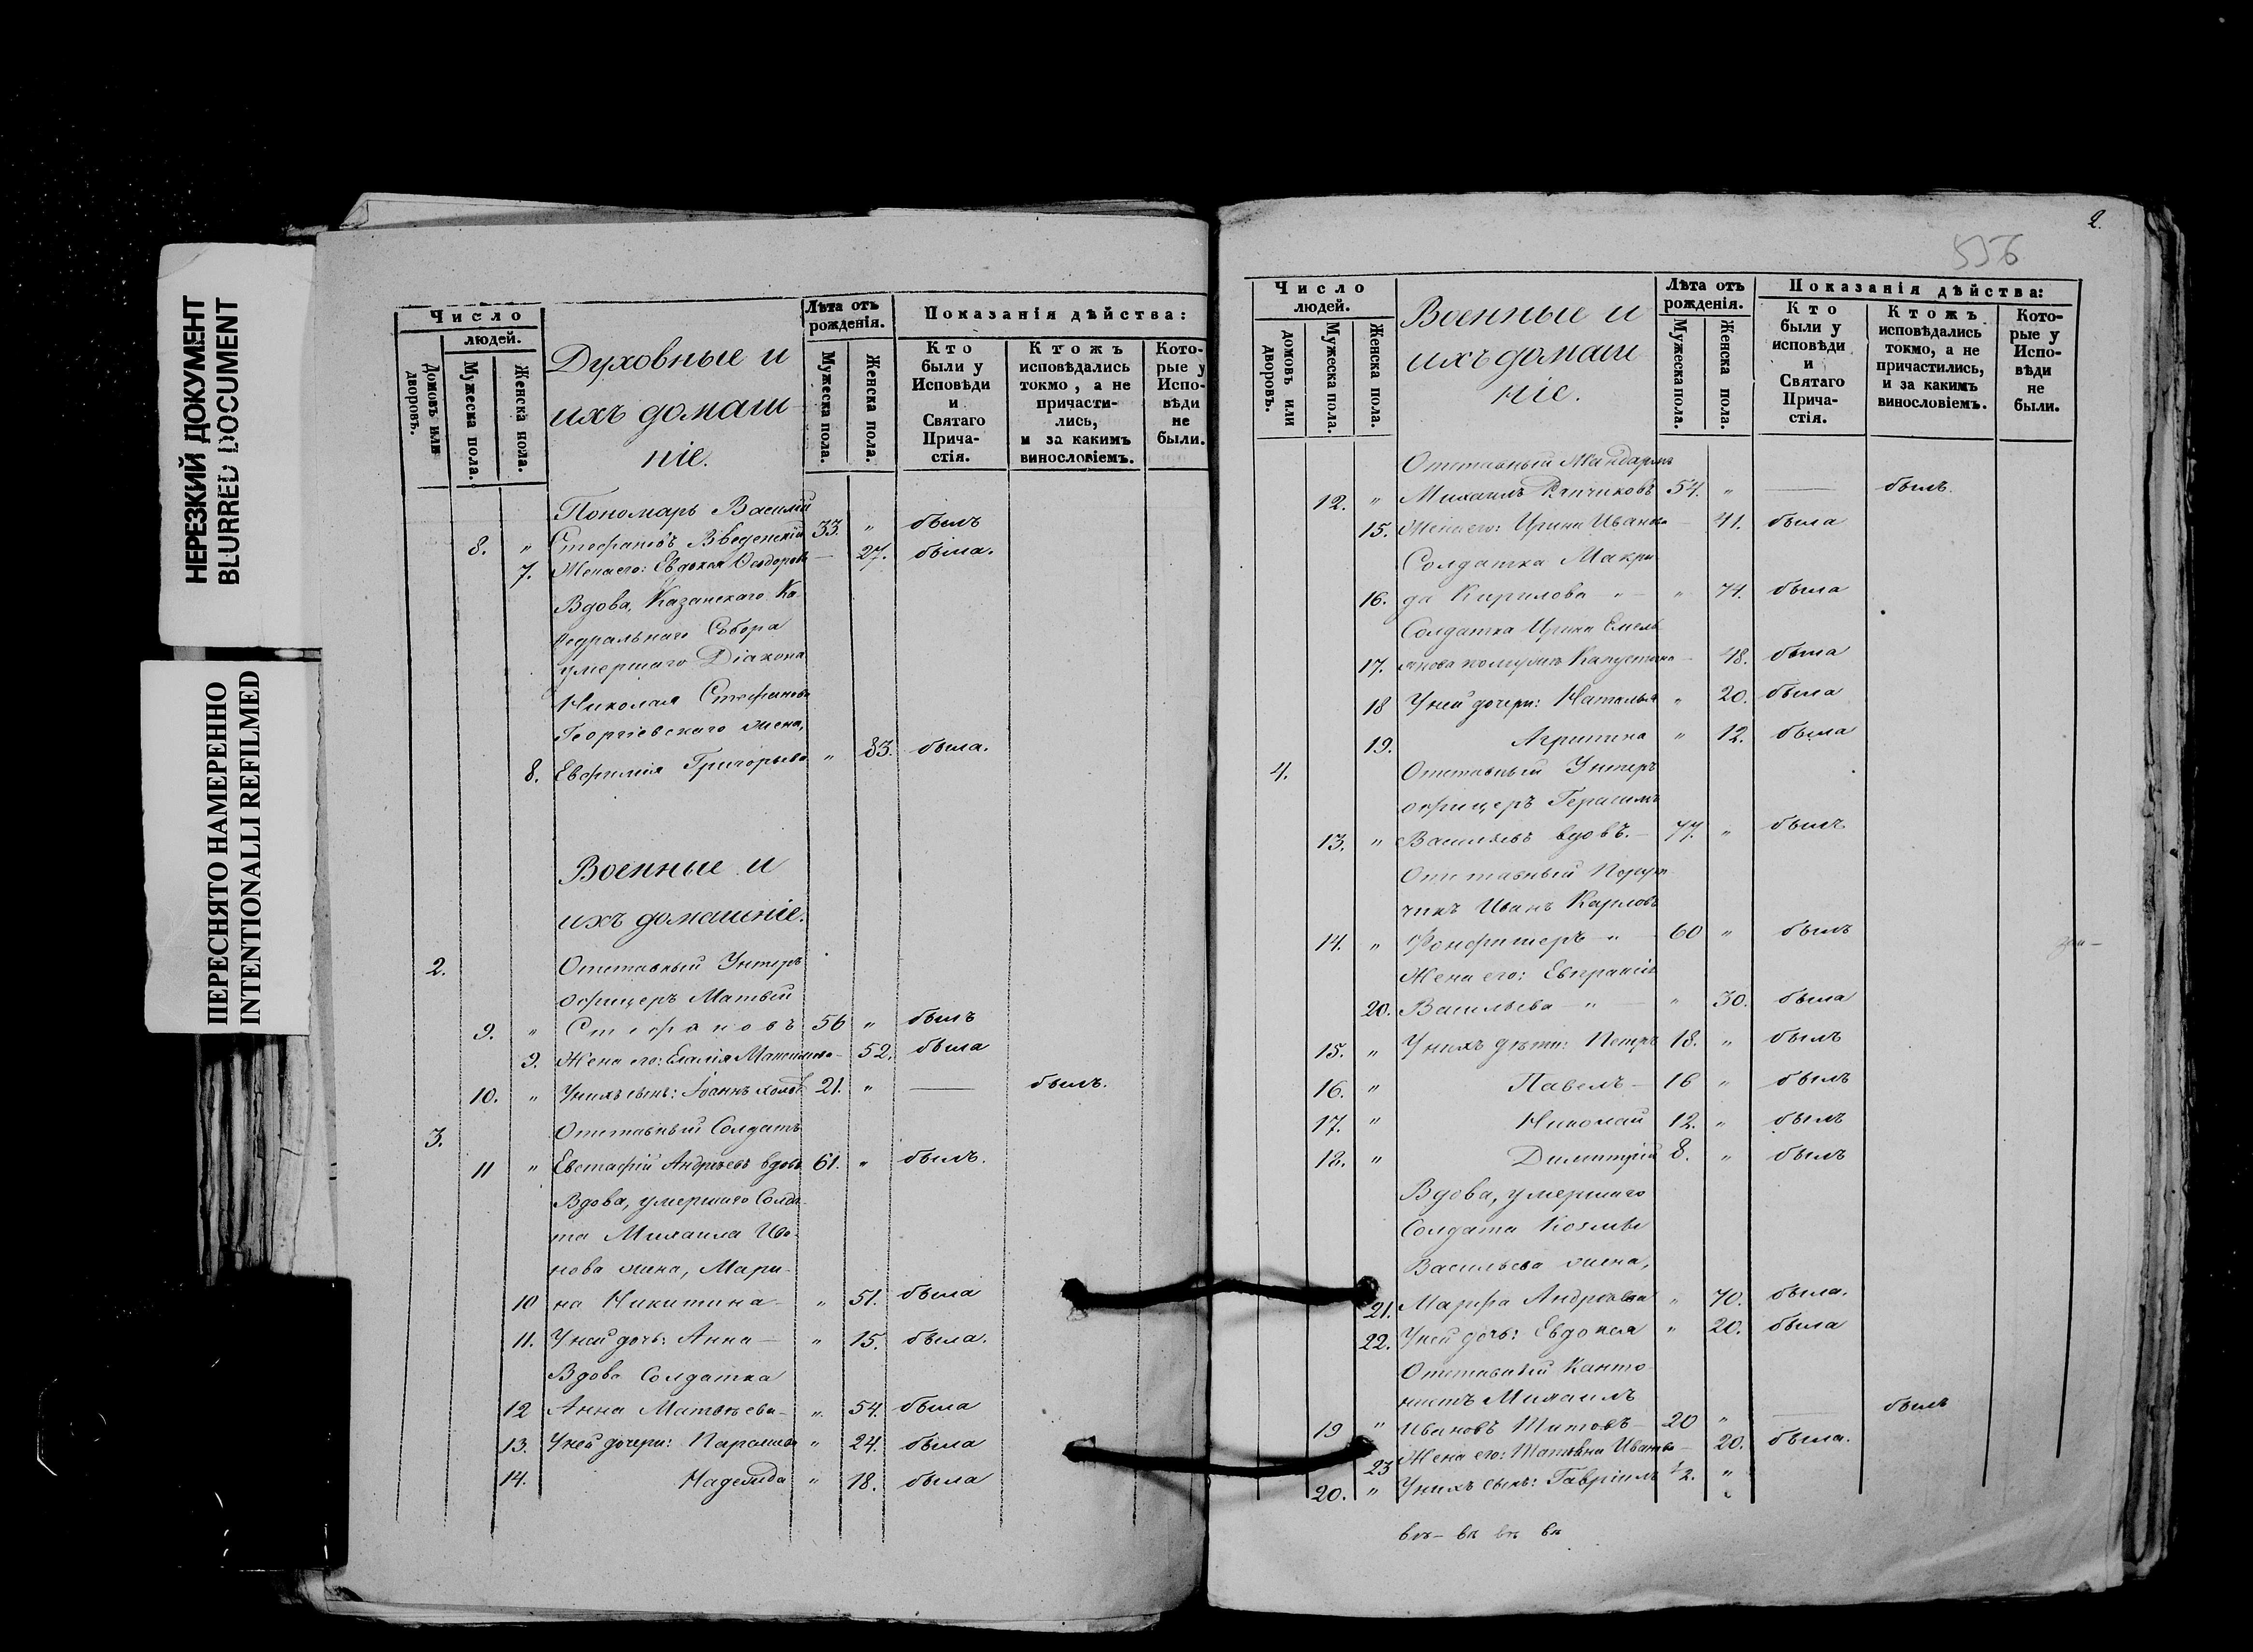 НЕРЕЗКИЙ ДОКУМЕНТ
BLURRED DOCUMENT
ПЕРЕСНЯТО НАМЕРЕННО
INTENTIONALLI REFILMED
Число
людей.
Домовъ или дворовъ.
Мужеска пола.
Женска пола.
Духовные и
ихъ домаш-
ніе.
Лѣта отъ
рожденія.
Мужеска пола.
Женска пола.
Показанія дѣйства:
Кто
были у
Исповѣди
и
Святаго
Прича-
стія.
Ктожъ
исповѣдались
токмо, а не
причасти-
лись,
и за какимъ
винословіемъ.
Кото-
рые у
Испо-
вѣди
не
были.
Пономарь Василій
8. " Стефановъ Введенскій 33. " былъ
7. Жена его: Евдокія Ѳеодорова — 27. была.
Вдова, Казанскаго Ка-
ѳедральнаго Собора
умершаго Діакона
Николая Стефанова
Георгіевскаго жена,
8. Евфимія Григорьева " 83. была.
Военные и
ихъ домашніе.
2. Отставный Унтеръ
офицеръ Матвѣй
9. " Стефановъ 56 " былъ
9. Жена его: Максимова — 52. была
10. " У нихъ сынъ: Іоаннъ холос 21. " — былъ.
3. Отставный Солдатъ
11 " Евстафій Андреевъ вдовъ 61. " былъ.
Вдова, умершаго Солда-
та Михаила Ива-
нова жена, Мари-
10 на Никитина — " 51. была
11. У ней дочь: Анна — " 15. была.
Вдова Солдатка
12 Анна Матвѣева — " 54. была
13. У ней дочери: Параскева " 24. была
14. Надежда " 18. была
2.
556
Число
людей.
домовъ или дворовъ.
Мужеска пола.
Женска пола.
Военные и
ихъ домаш
ніе.
Лѣта отъ
рожденія.
Мужеска пола.
Женска пола.
Показанія дѣйства:
Кто
были у
исповѣди
и
Святаго
Прича-
стія.
Ктожъ
исповѣдались
токмо, а не
причастились,
и за какимъ
винословіемъ.
Кото-
рые у
Испо-
вѣди
не
были.
Отставный Жандармъ
12. " Михаилъ 54. " — былъ.
15. Жена его: Ирина Иванова — 41. была
Солдатка Макри-
16. да Кирилова " — " 74. была
Солдатка Ирина Емель
17. янова Капустина — 48. была
18 У ней дочери: Наталья " 20. была
19. Агрипина " 12. была
4. Отставный Унтеръ
офицеръ Герасимъ
13. " Васильевъ вдовъ. — 77. " былъ
Отставный Поручи-
чикъ Иванъ Карловъ
14. " " — 60 " былъ
Жена его: Евпраксія
20. Васильева — " — " 30. была
15. " У нихъ дѣти: Петръ 18. " былъ
16. " Павелъ — 16 " былъ
17. " Николай 12. " былъ
18. " Димитрій 8. " былъ
Вдова, умершаго
Солдата Козмы
Васильева жена,
21. Марфа Андреева " 70. была.
22. У ней дочь: Евдокия " 20. была
Отставный Канто-
нистъ Михаилъ
19 " Ивановъ Титовъ — 20 " — былъ
23 Жена его: Татьяна Иванова — 20. была.
20. " У нихъ сынъ: Гавріилъ ½. "